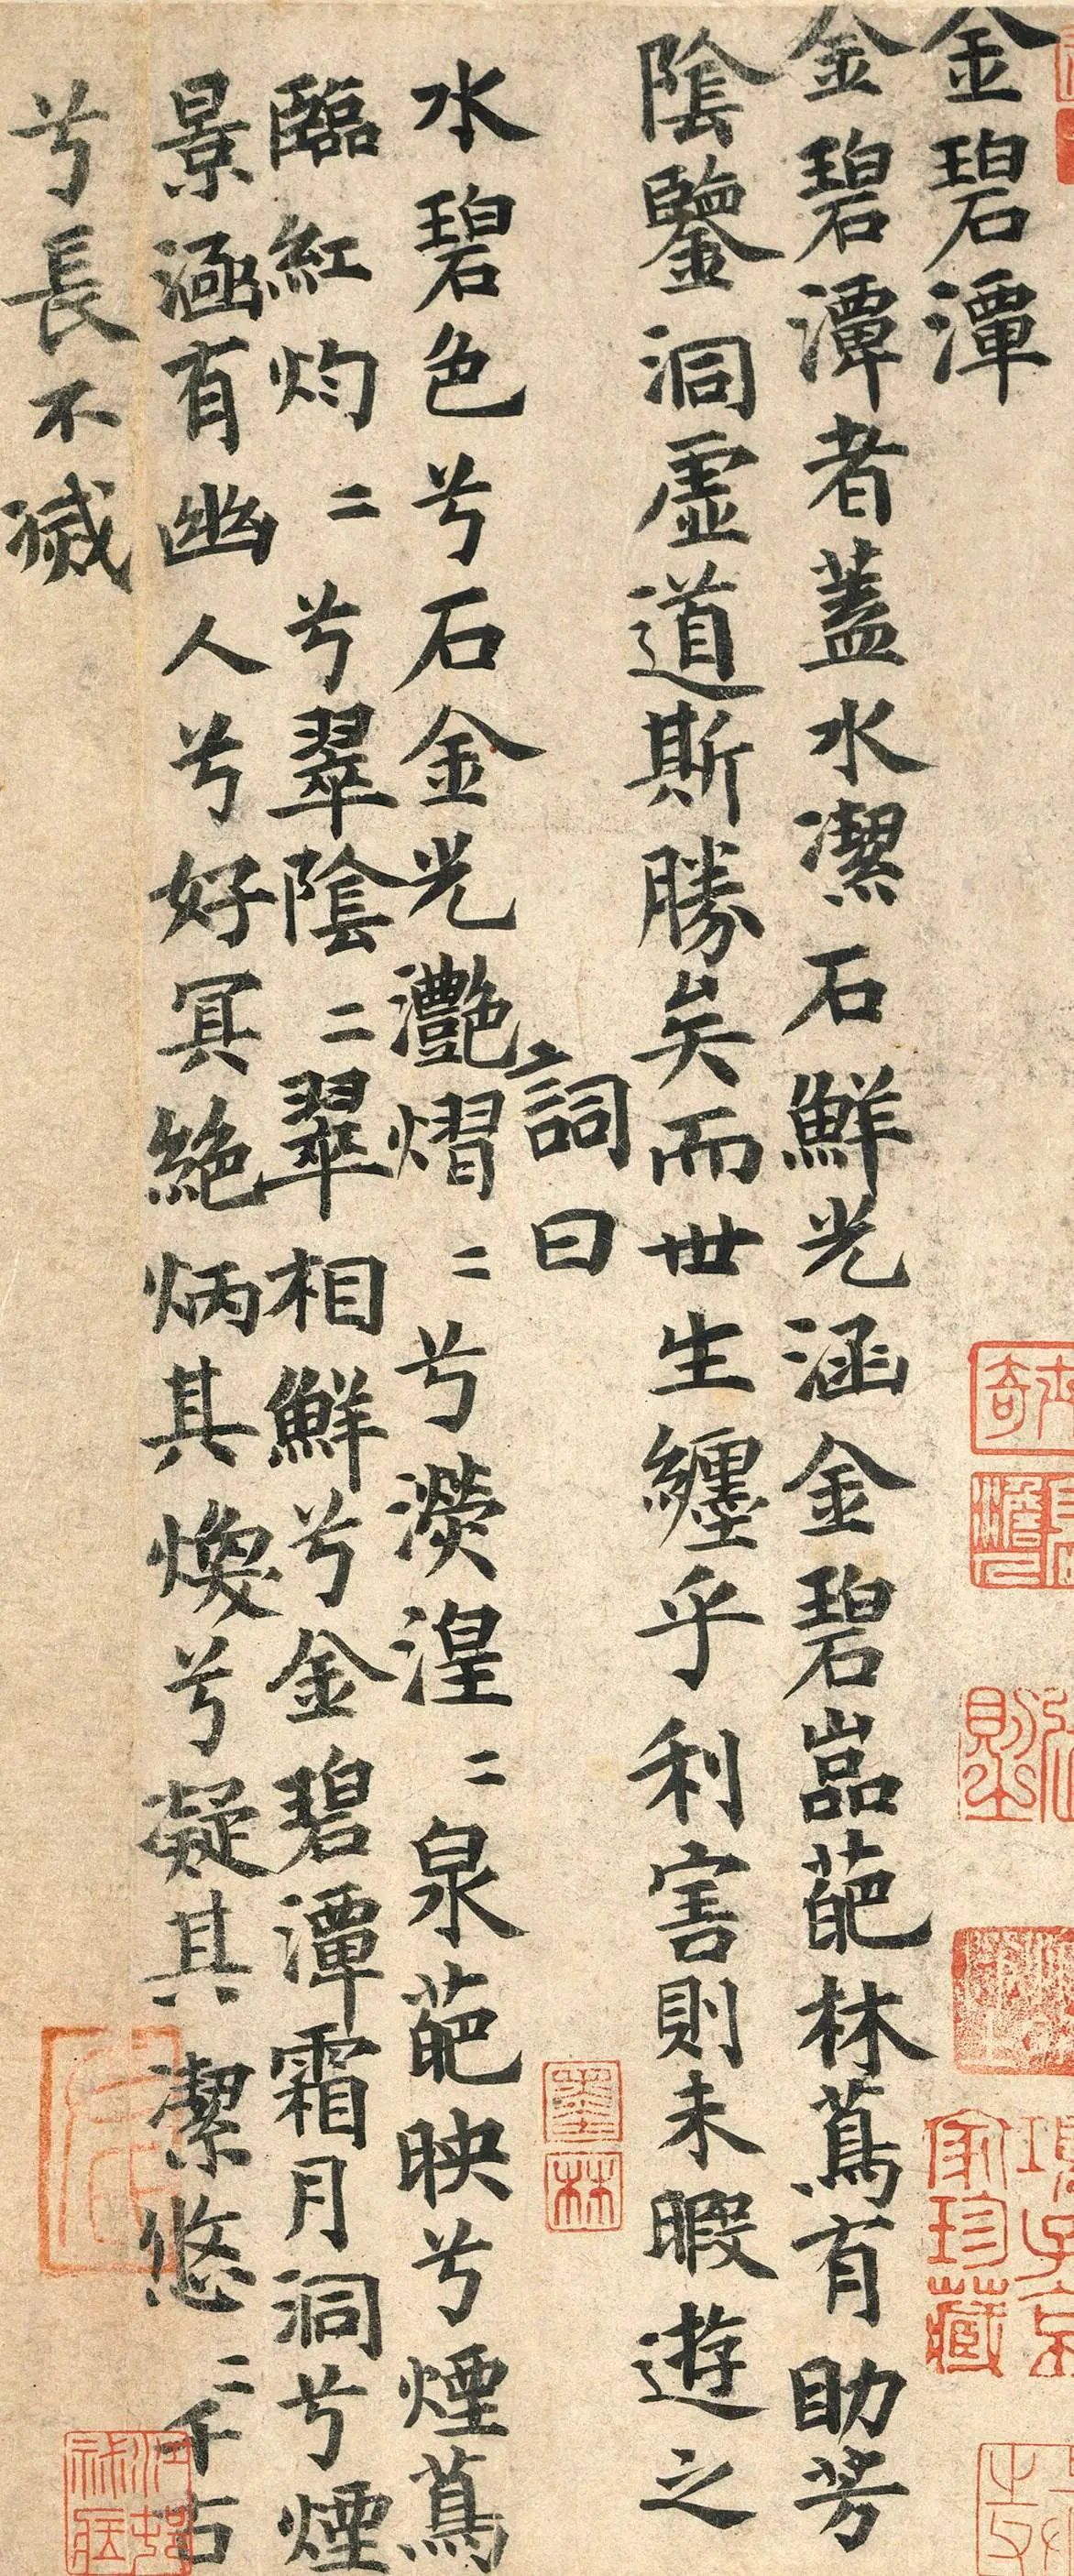 金碧潭
金碧潭者蓋水潔石鮮光涵金碧嵓葩林蔦有助芳
陰鑒洞虛道斯勝矣而世生纏乎利害則未暇遊之
詞曰
水碧色兮石金光灔熠〻兮瀠湟〻泉葩映兮煙蔦
臨紅灼〻兮翠陰〻翠相鮮兮金碧潭霜月洞兮煙
景涵有幽人兮好冥絶炳其煥兮凝其潔悠〻千古
兮長不滅
墨林
項子京家珍藏